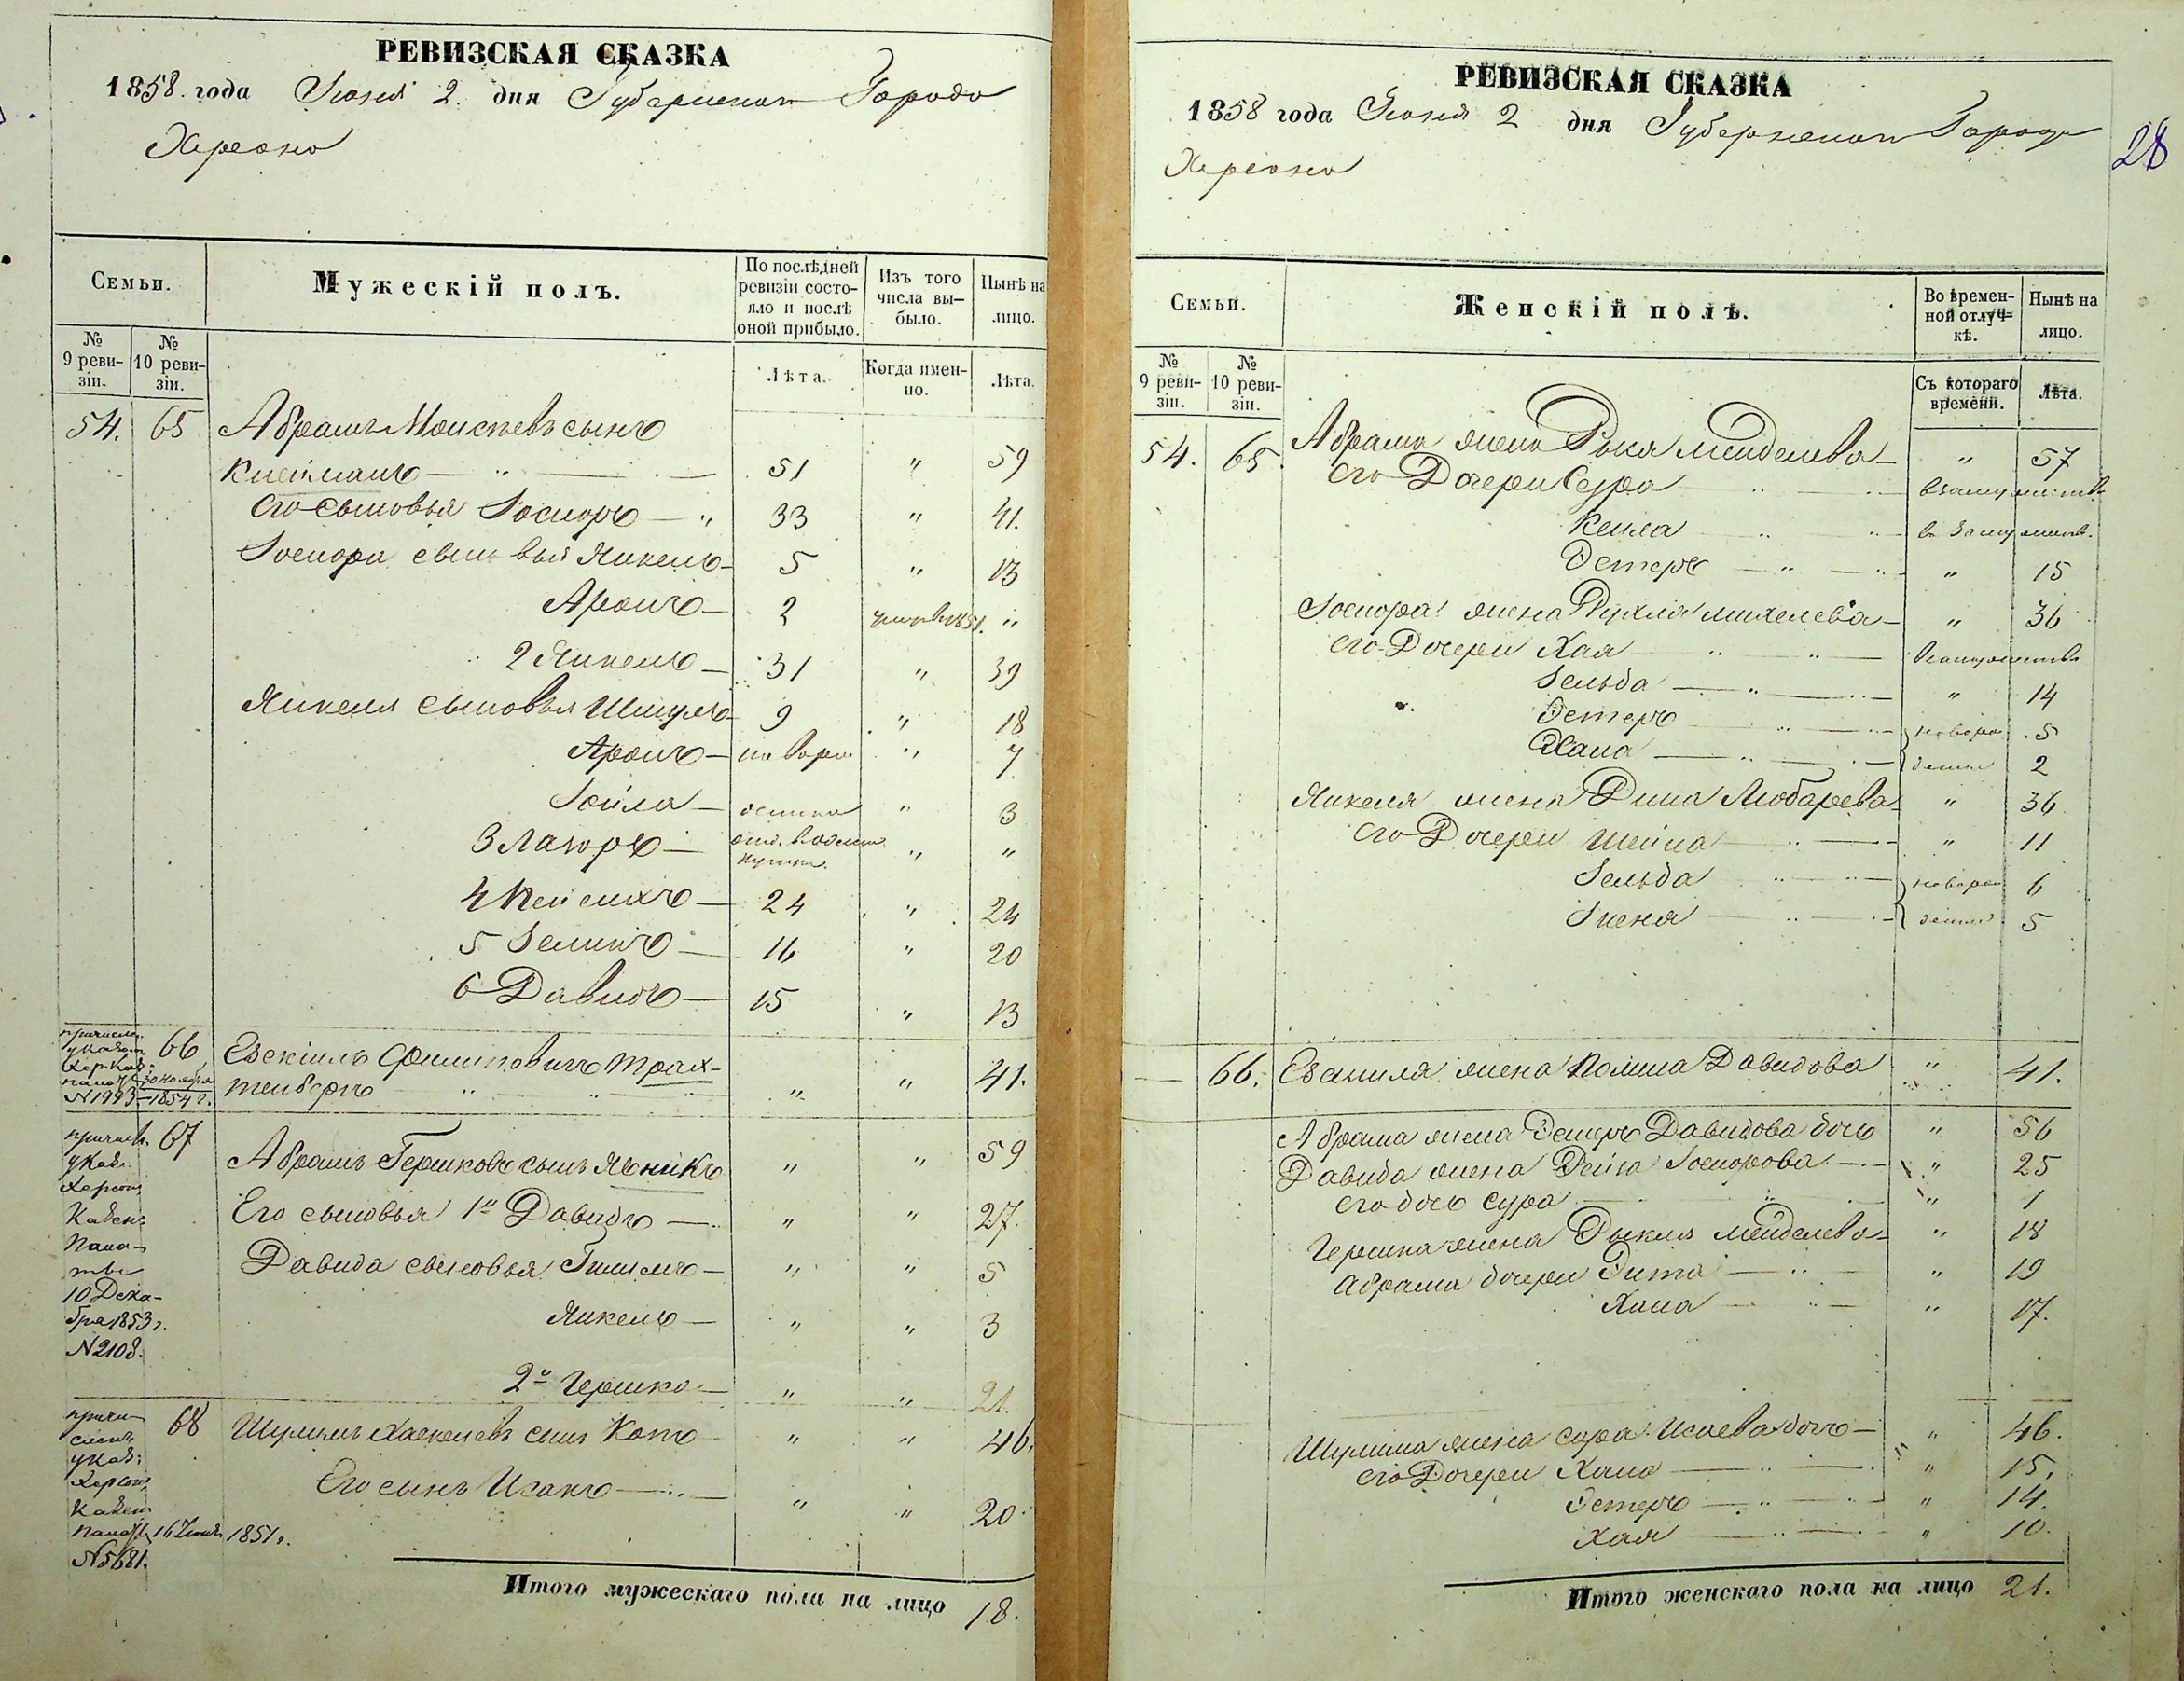 РЕВИЗСКАЯ СКАЗКА
1858. года Іюня 2. дня Губернскаго Города
Херсона
Семьи.
Мужескій полъ.
По послѣдней ревизіи состояло и послѣ оной прибыло.
Изъ того числа выбыло.
Нынѣ на лицо.
№ 9 ревизіи.
№ 10 ревизіи.
Лѣта.
Когда именно.
Лѣта.
54. 65 Абрамъ Моисеевъ сынъ
Клейманъ — " — 51 " 59
Его сыновья Іосиоръ — " 33 " 41.
Іосиора сыновья Янкель — 5 " 13
Аронъ — 2 1851. "
2 Янкель — 31 " 39
Янкеля сыновья Шмуль 9 " 18
Аронъ — новоро " 7
Іойла — " 3
3 Лазоръ — " "
4 24 " 24
5 Зелигъ — 16 " 20
6 Давидъ — 15 " 13
причислен. указом Хер. Каз. палаты 30 Ноября № 1993 — 1854 г.
66 Езекіиль Филиповичъ Трах-
тенберъ " " 41.
причисл. 67 Абрамъ Гершковъ сынъ Ясникъ " " 59
указ.
Херсон.
Казен.
Пала-
ты
10 Дека-
бря 1853 г.
№ 2108.
Его сыновья 1й Давидъ — " " 27.
Давида сыновья — " " 5
Янкель — " " 3
2й Гершко — " " 21.
причи- 68 Шулимъ Хаскелевъ сынъ Котъ " " 46.
слен.
указ:
Херсон.
Казен.
Палаты 16 1851 г.
№ 5681.
Его сынъ Исакъ — " " 20.
Итого мужескаго пола на лицо 18.
РЕВИЗСКАЯ СКАЗКА
1858 года Іюня 2 дня Губернскаго Города
Херсона
28
Семьи.
Женскій полъ.
Во временной отлучкѣ.
Нынѣ на лицо.
№ 9 ревизіи.
№ 10 ревизіи.
Съ котораго времени.
Лѣта.
54. 65. Абрама жена Менделева — " 57
Его Дочери Сура — взамужеств.
Кейла — в Замужеств.
Эстеръ — " 15
Іосиора жена Рухля Михелева — " 36
Его Дочери Хая — взамужеств
Зельда — " 14
Эстеръ — новоро 5
Хана — 2
Янкеля жена Дина Любарева — " 36
Его Дочери Шейна — " 11
Зельда — новоро 6
5
66. Езекиля жена Полина Давидова " 41.
Абрама жена Эстеръ Давидова дочь " 56
Давида жена Рейза Іосиорова — " 25
Его дочь Сура " 1
Гершка жена Рыкля Мейделева — " 18
Абрама дочери Гита — " 19
Хана — " 17.
Шулима жена Сара Исаева дочь — " 46.
Его Дочери Хана — " 15.
Эстеръ — " 14.
Хая — " 10.
Итого женскаго пола на лицо 21.